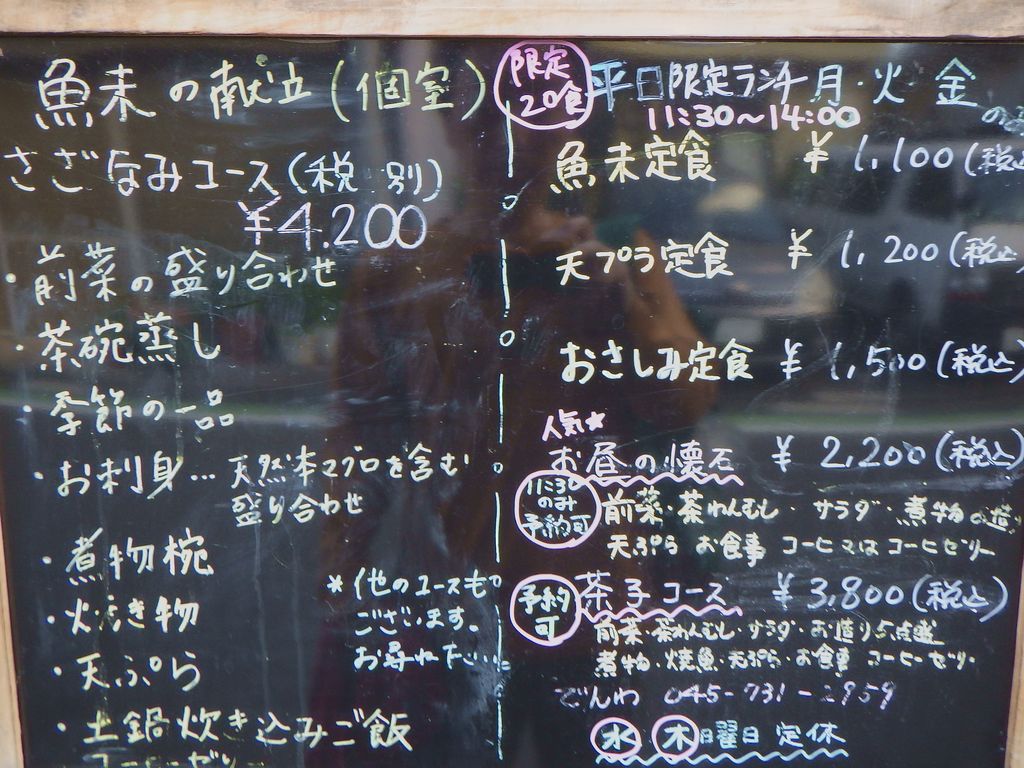 魚未の献立(個室)
さざなみコース(税別)
¥4,200
・前菜の盛り合わせ
・茶碗蒸し
・季節の一品
・お刺身…天然本マグロを含む
盛り合わせ
・煮物椀
・焼き物
・天ぷら
・土鍋炊き込みご飯
コーヒーゼリー
*他のコースも
ございます。
お尋ね下さい
限定
20食
平日限定ランチ月・火 金
11:30〜14:00
の
魚未定食 ¥1,100(税込
天プラ定食 ¥1,200(税込
おさしみ定食 ¥1,500(税込)
人気★
お昼の懐石 ¥2,200(税込)
11:30
のみ
予約可
前菜・茶わんむし・サラダ・煮物
天ぷら お食事 コーヒーマタはコーヒーゼリー
予約
可
茶子コース ¥3,800(税込)
前菜・茶わんむし・サラダ・お造り5点盛
煮物・焼魚・天ぷら・お食事 コーヒーゼリー
でんわ 045-731-2959
水 木 曜日定休